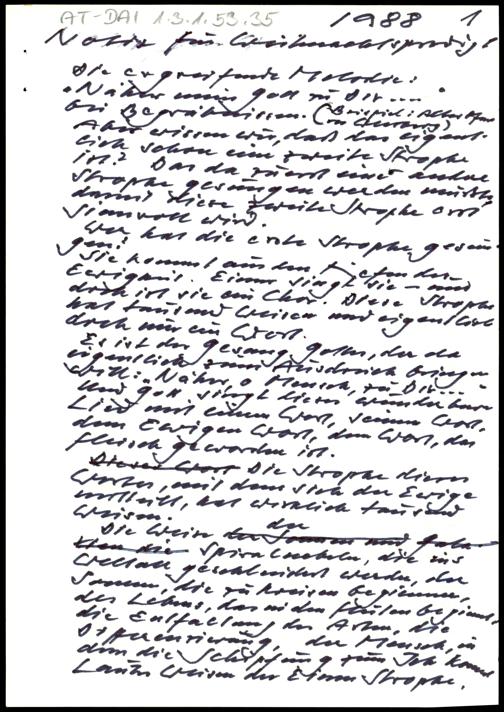 AT-DAI 1.3.1.53.35
1988 1
Notiz für Weihnachtspredigt
Die ergreifende Melodie:
"Näher mein Gott zu Dir...."
bei Begräbnissen. (Beispiel: Alter Pfarrer
Aber wissen wir, daß das eigent-
lich schon eine zweite Strophe
ist? Das da zuerst eine andere
Strophe gesungen werden mußte
damit diese zweite Strophe erst
sinnvoll wird.
Wer hat die erste Strophe gesun-
gen?
Sie kommt aus den Tiefen der
Ewigkeit. Einer singt sie - und
doch ist sie ein Chor. Diese Strophe
hat tausend Weisen und eigentlich
doch nur ein Wort.
Es ist der Gesang Gottes, der da
eigentlich zum Ausdruck bringen
will: "Näher, o Mensch, zu Dir...."
Und Gott singt dieses wunderbare
Lied mit einem Wort, seinem Wort,
dem Ewigen Wort, dem Wort, das
Fleisch geworden ist.
Dieses Wort Die Strophe dieses
Wortes, mit dem sich der Ewige
mitteilt, hat wirklich tausend
Weisen.
Die Weise der
Spiralnebeln, die ins
Weltall geschleudert werden, der
Sonnen, die zu kreisen beginnen,
des Lebens, das in den Fluten beginnt,
die Entfaltung der Arten, die
Differenzierung, der Mensch, in
dem die Schöpfung zum Ich kommt
Lauter Weisen der Einen Strophe.